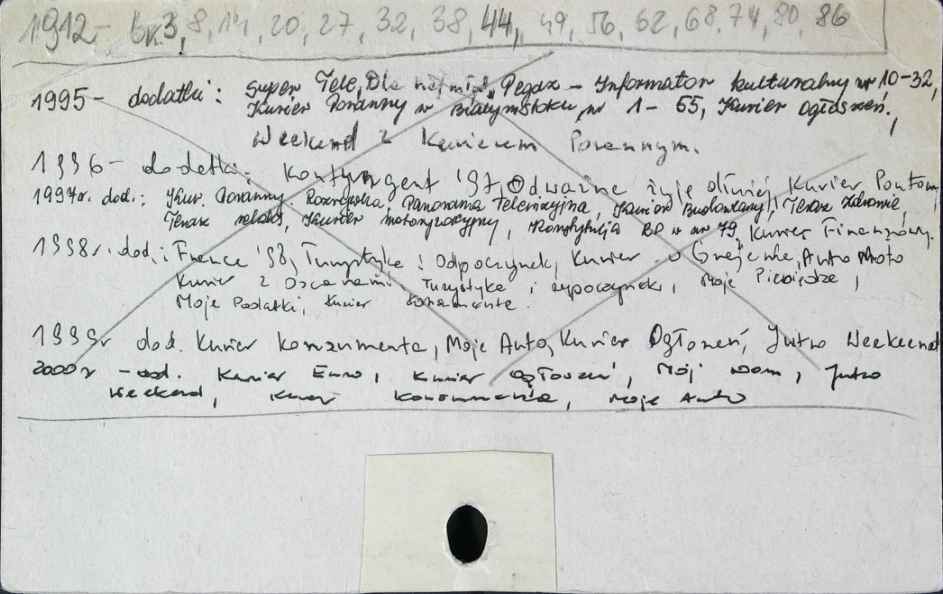 1912- br. 3, 8, 14, 20, 27, 32, 38, 44, 49, 56, 62, 68, 74, 80, 86
1995 - dodatki: Super Tele, Dla Pegaz - Informator kulturalny nr 10-32,
Kurier Poranny w Białymstoku nr 1 - 65, Kurier Ogłoszeń,
Weekend z Kurierem Porannym.
1996 - dodatki: Kontyngent '97, Odważnie żyje dłużej, Kurier Pontom,
1997r. dod.: Kur. Poranny Rozrywka, Panorama Telewizyjna, Kurier Budowlany, Teraz zdrowie,
Teraz relaks, Kurier motoryzacyjny, Konstytucja RP w nr 79, Kurier Finansowy.
1998r. dod.: France '98, Turystyka i Odpoczynek, Kurier w Grajewie, Auto Moto
Kurier z Turystyka i wypoczynek, Moje Pieniądze,
Moje Podatki, Kurier konsumenta.
1999r dod. Kurier konsumenta, Moje Auto, Kurier Ogłoszeń, Jutro Weekend
2000r - dod. Kurier Euro, Kurier Ogłoszeń, Mój dom, Jutro
Weekend, Kurier Konsumenta, Moje Auto